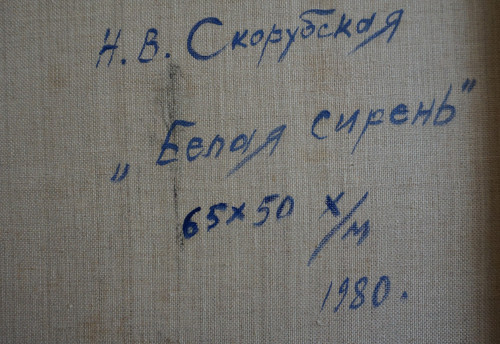 Н. В. Скорубская
„Белая сирень"
65х50 х/м
1980.